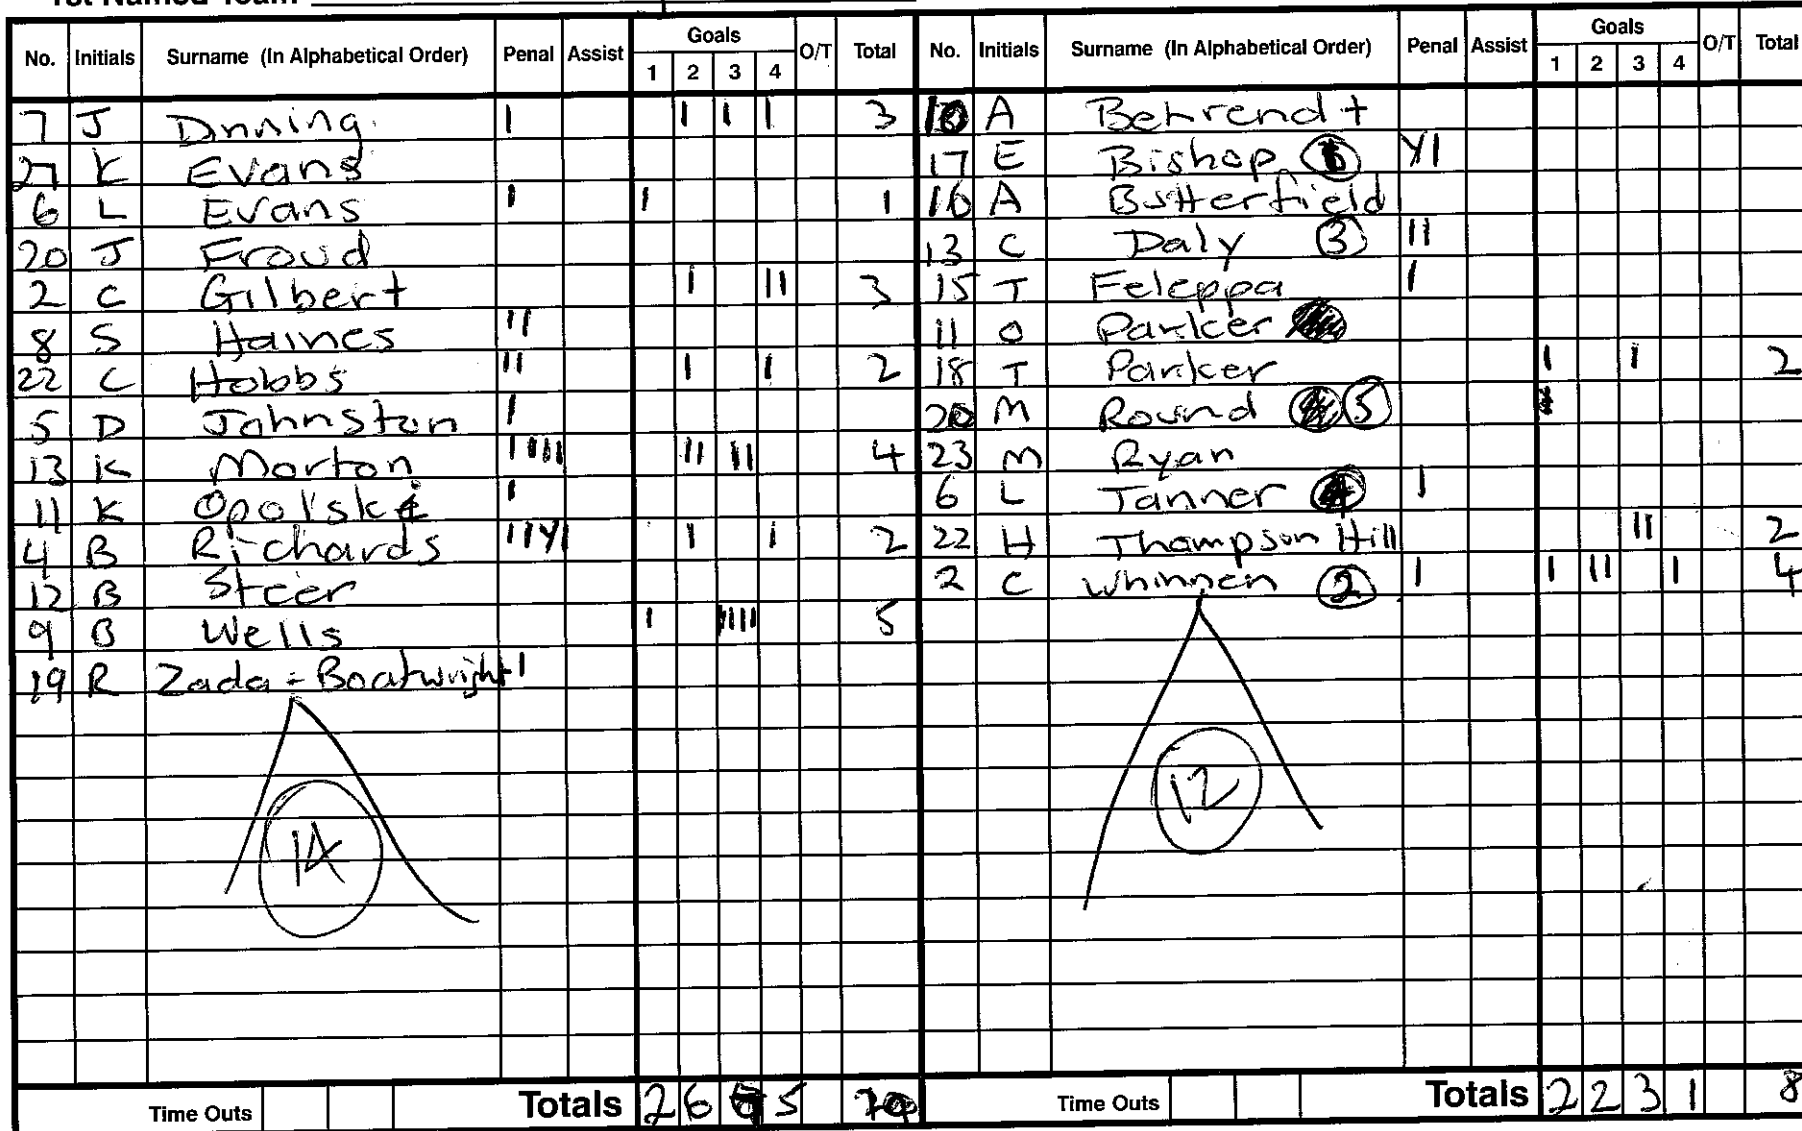 1st Named Team
No. Initials Surname (In Alphabetical Order) Penal Assist Goals 1 2 3 4 O/T Total
7 J Dnning. I I I I 3
27 K Evans
6 L Evans I I 1
20 J Froud
2 C Gilbert I II 3
8 S Haines II
22 C Hobbs II I I 2
5 D Johnston I
13 K Morton IIIII II II 4
11 K Opolski I
4 B Richards IIYI I I 2
12 B Steer
9 B Wells I IIII 5
19 R Zada-Boatwright I
14
Time Outs Totals 2 6 5
No. Initials Surname (In Alphabetical Order) Penal Assist Goals 1 2 3 4 O/T Total
10 A Behrendt
17 E Bishop YI
16 A Butterfield
13 C Daly 3 II
15 T Feleppa I
11 O Parker
18 T Parker I I 2
20 M Round 5
23 M Ryan
6 L Tanner I
22 H Thompson Hill II 2
2 C Whinnen 2 I I II I 4
12
Time Outs Totals 2 2 3 1 8